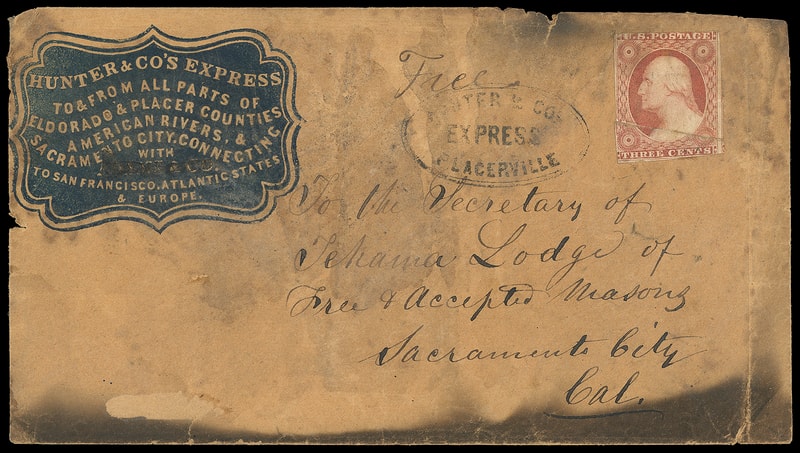 HUNTER & CO'S EXPRESS
TO & FROM ALL PARTS OF
ELDORADO & PLACER COUNTIES
AMERICAN RIVERS, &
SACRAMENTO CITY, CONNECTING
WITH
TO SAN FRANCISCO, ATLANTIC STATES
& EUROPE.
Free
HUNTER & CO'S
EXPRESS
PLACERVILLE
U.S. POSTAGE
THREE CENTS
To the Secretary of
Tehama Lodge of
Free & Accepted Masons
Sacramento City
Cal.